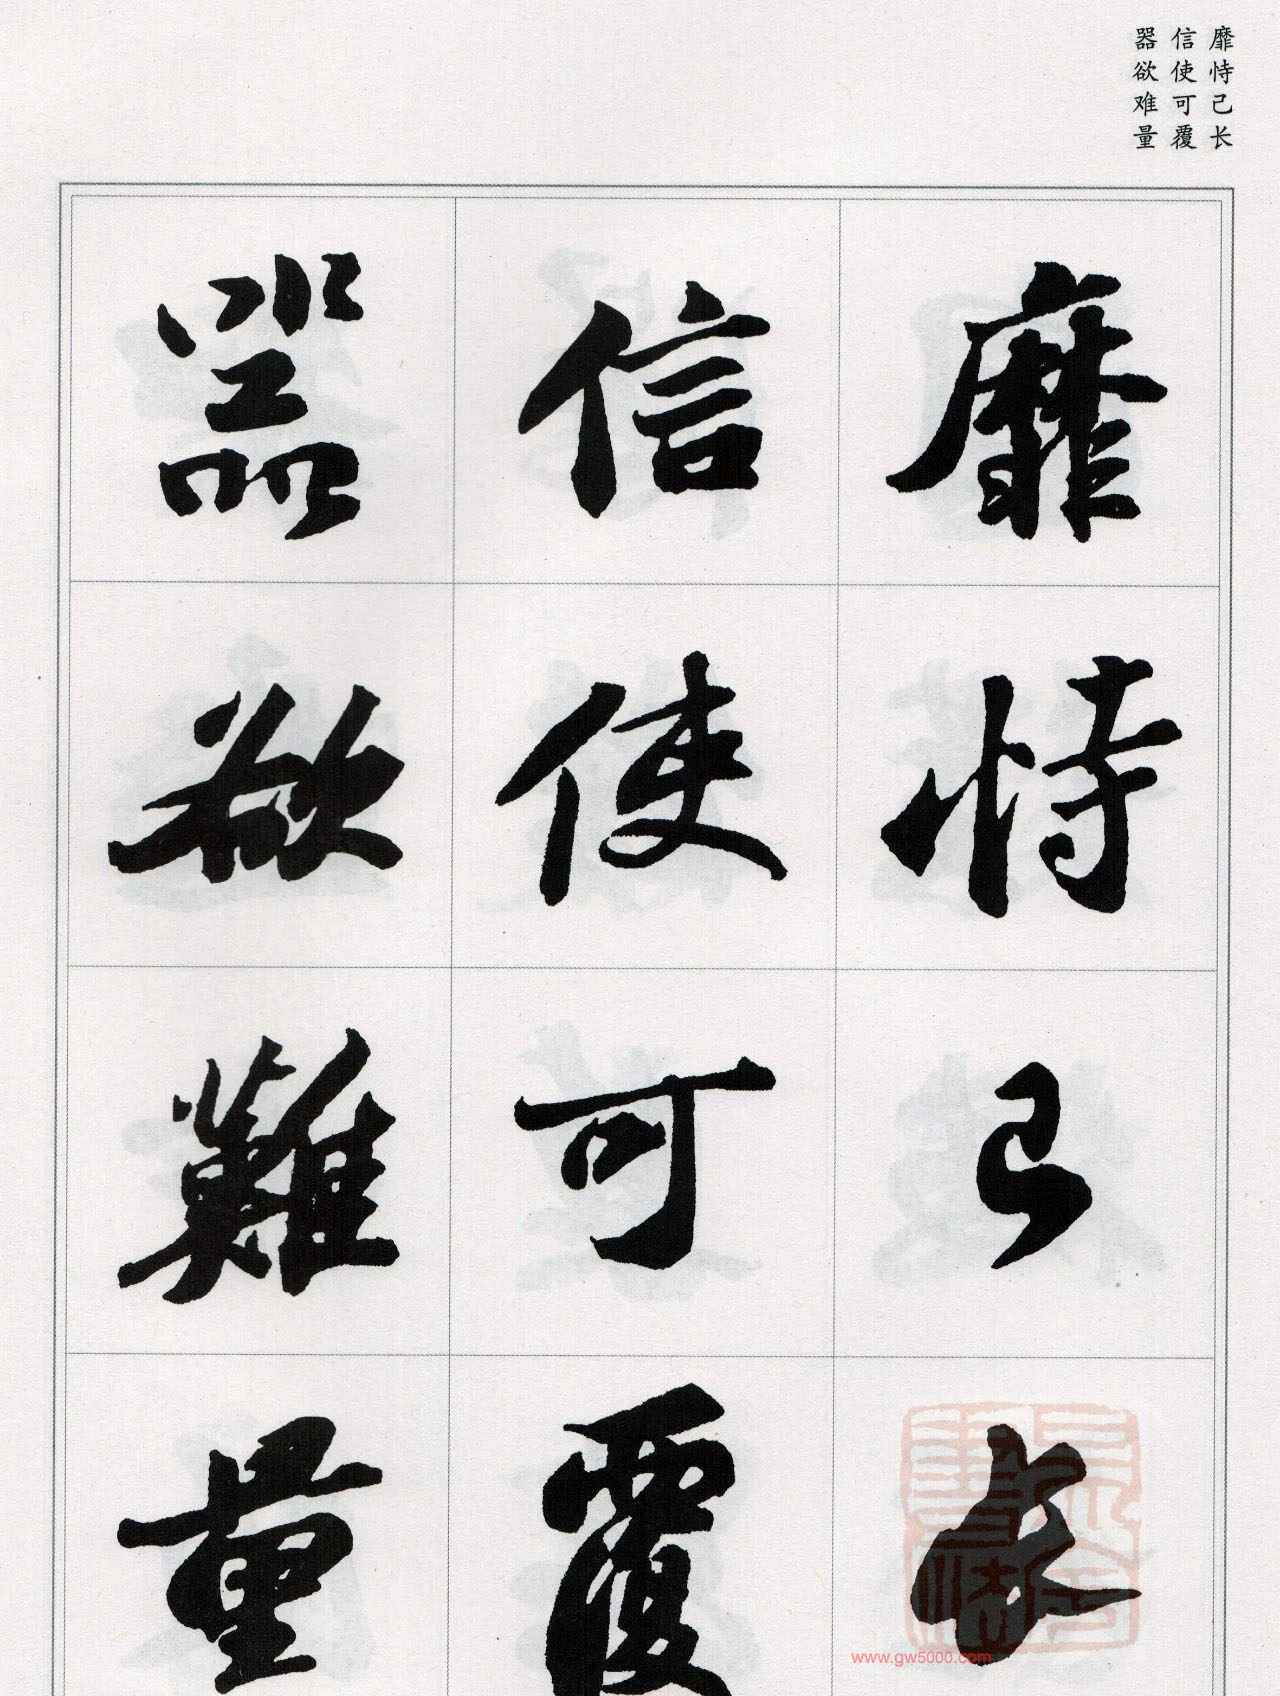 靡恃己长
信使可覆
器欲难量
靡恃己長
信使可覆
器欲難量
www.gw5000.com